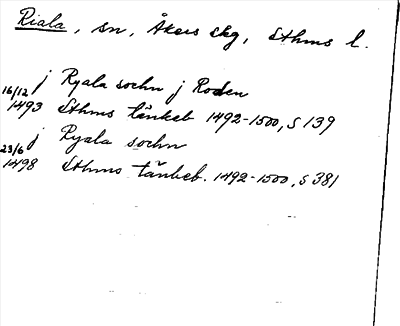 Riala, sn, Åkers skg, Sthms l.
j Ryala sochn j Roden
16/12
1493 Sthms tänkeb 1492-1500, s 139
j Ryala sochn
23/6
1498 Sthms tänkeb. 1492-1500, s 381